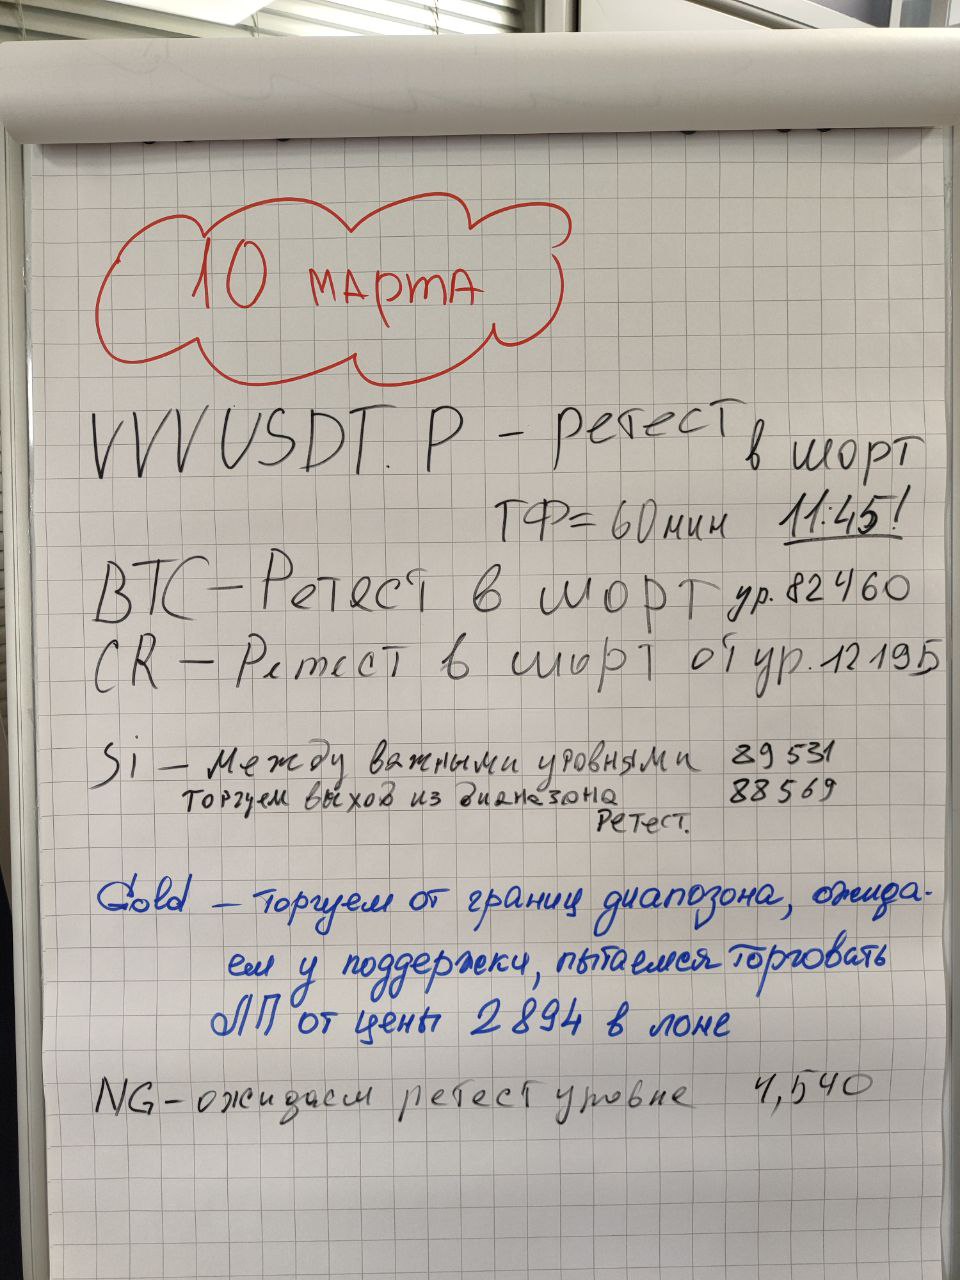 10 марта
VVVUSDT.P - ретест в шорт
ТФ=60мин 11:45!
BTC - Ретест в шорт ур. 82460
CR - Ретест в шорт от ур. 12195
Si - Между важными уровнями 89531
торгуем выход из диапазона 88569
Ретест.
Gold - торгуем от границ диапозона, ожида-
ем у поддержки, пытаемся торговать
ЛП от цены 2894 в лонг
NG - ожидаем ретест уровня 4,540